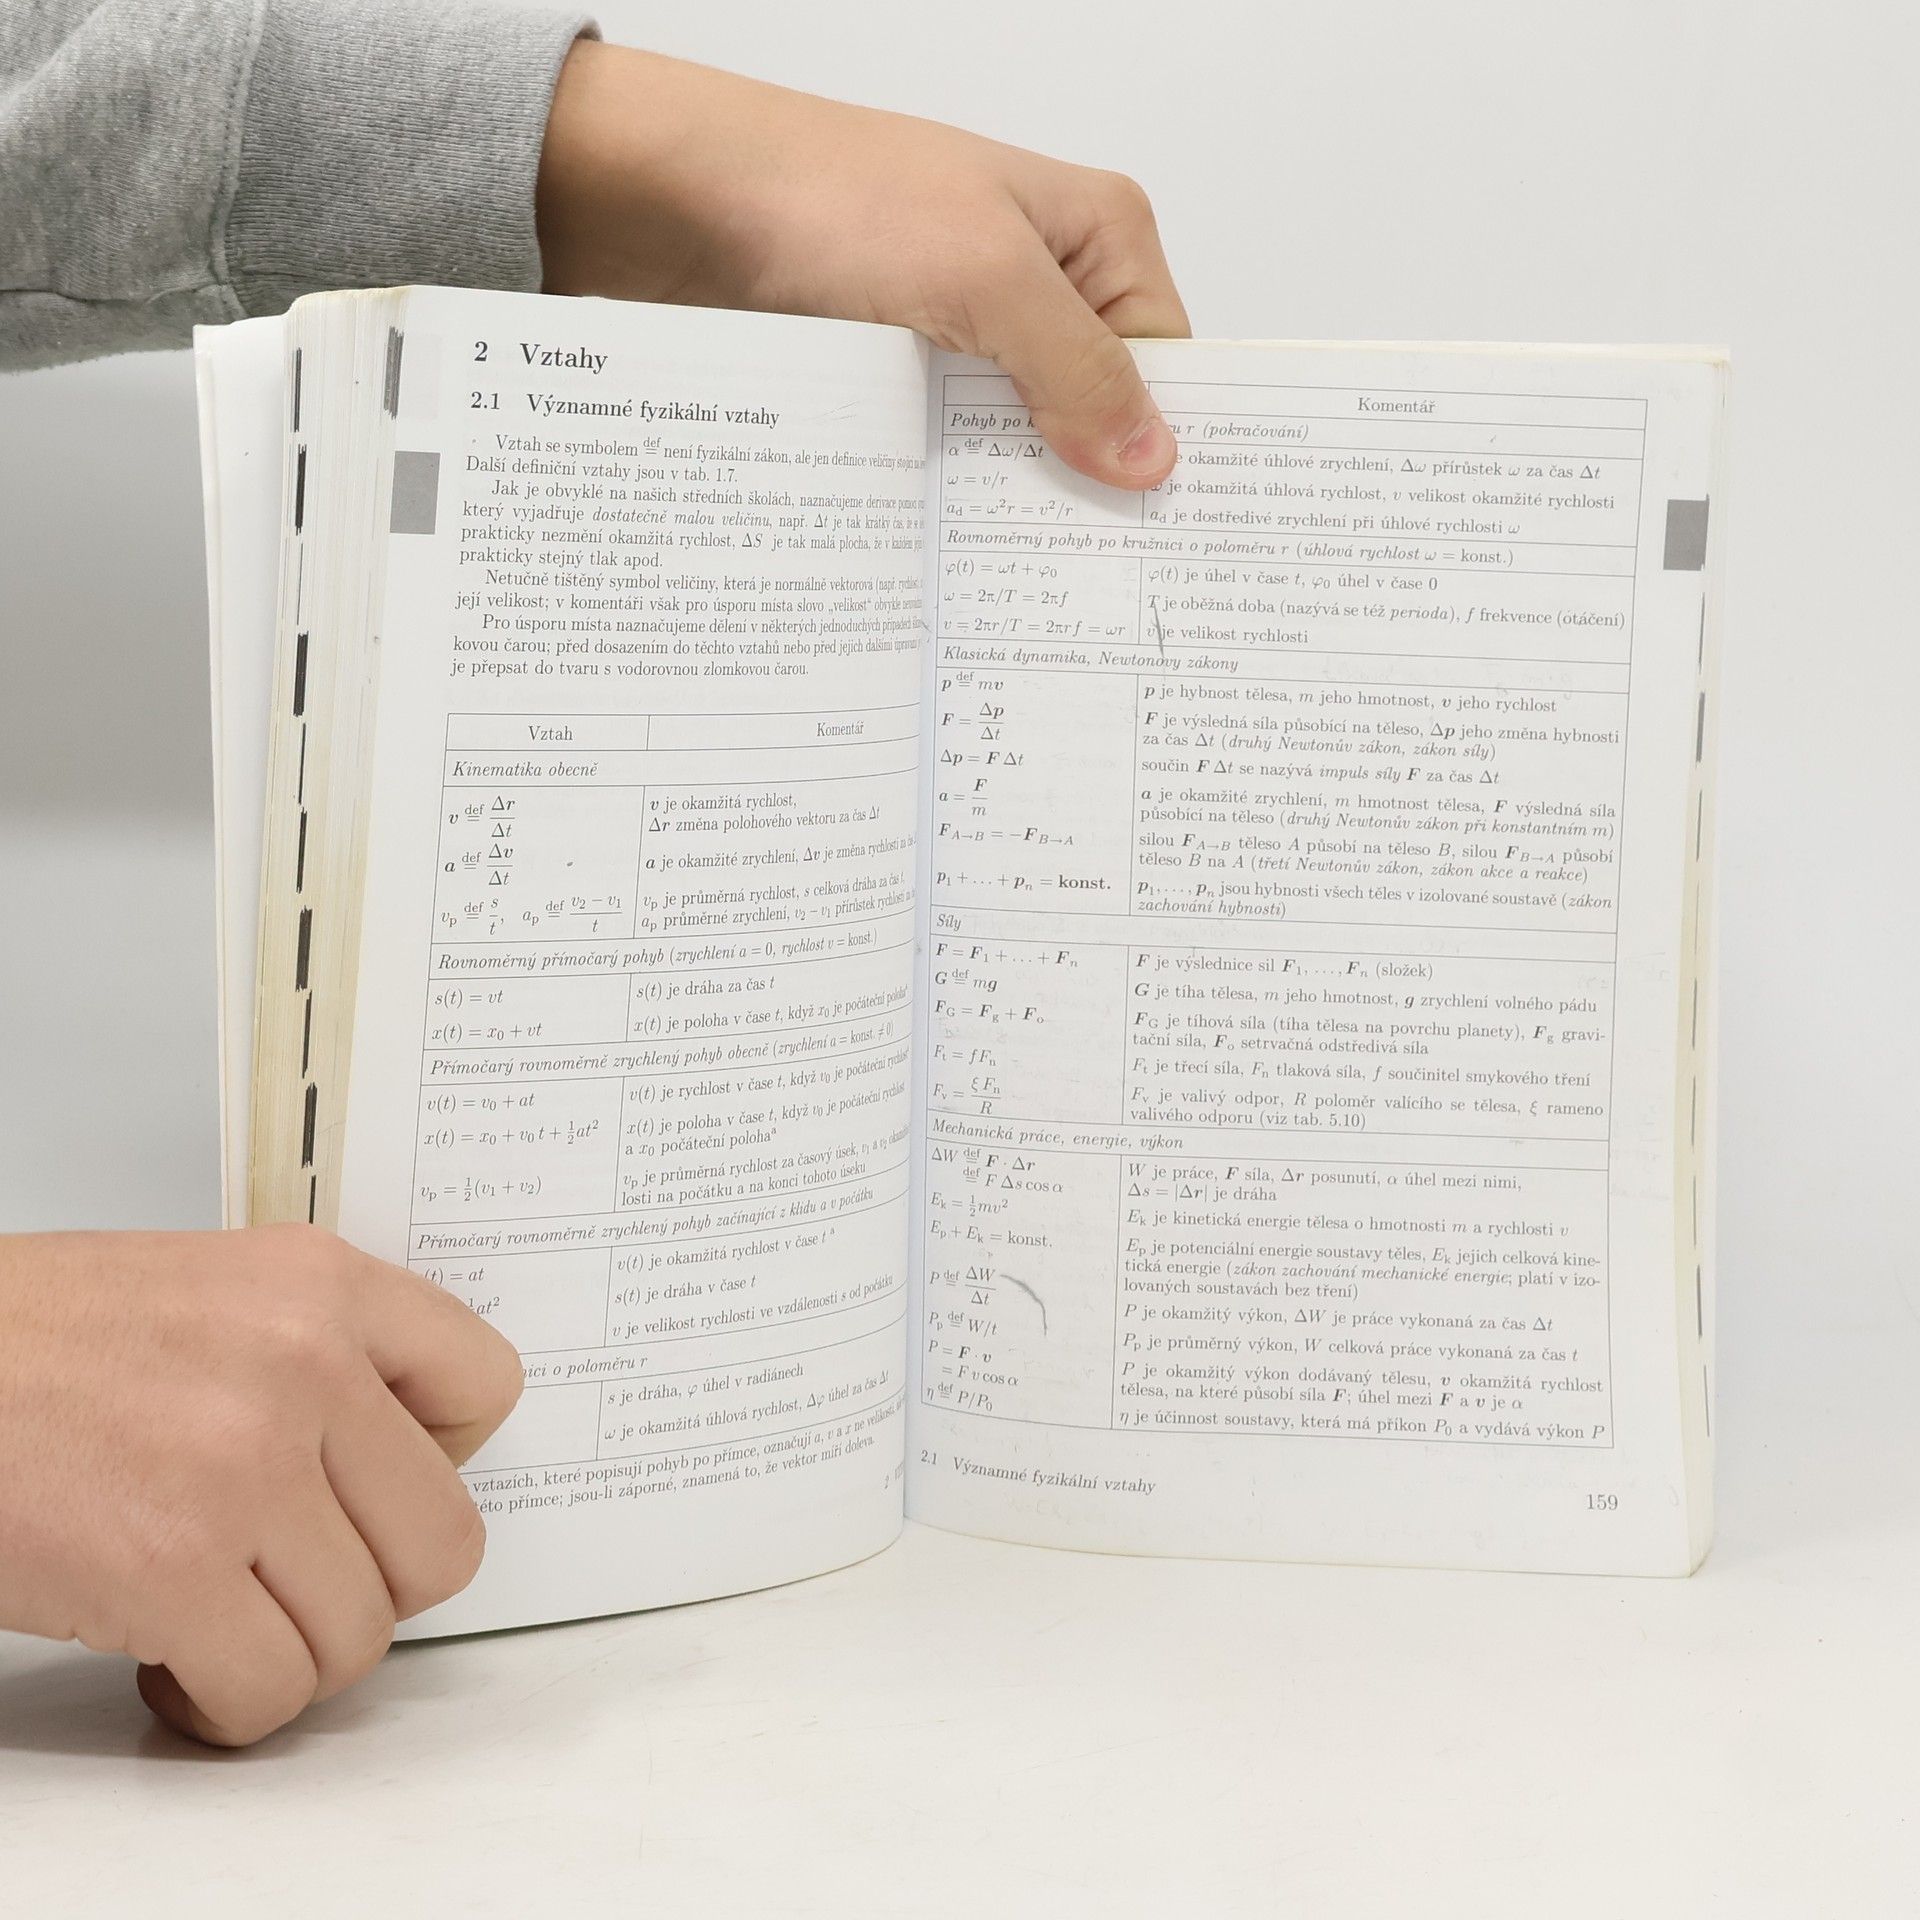 2 Vztahy
2.1 Významné fyzikální vztahy
Vztah se symbolem def= není fyzikální zákon, ale jen definice veličiny stojící
Další definiční vztahy jsou v tab. 1.7.
Jak je obvyklé na našich středních školách, naznačujeme derivace pomocí
který vyjadřuje dostatečně malou veličinu, např. Δt je tak krátký čas, že se
prakticky nezmění okamžitá rychlost, ΔS je tak malá plocha, že v každém
prakticky stejný tlak apod.
Netučně tištěný symbol veličiny, která je normálně vektorová (např. rychlost
její velikost; v komentáři však pro úsporu místa slovo „velikost“ obvykle
Pro úsporu místa naznačujeme dělení v některých jednoduchých případech
kovou čarou; před dosazením do těchto vztahů nebo před jejich dalšími úpravami
je přepsat do tvaru s vodorovnou zlomkovou čarou.
Vztah Komentář
Kinematika obecně
v def= Δr/Δt v je okamžitá rychlost,
Δr změna polohového vektoru za čas Δt
a def= Δv/Δt a je okamžité zrychlení, Δv je změna rychlosti
vp def= s/t, ap def= (v2 − v1)/t vp je průměrná rychlost, s celková dráha za čas t,
ap průměrné zrychlení, v2 − v1 přírůstek rychlosti
Rovnoměrný přímočarý pohyb (zrychlení a = 0, rychlost v = konst.)
s(t) = vt s(t) je dráha za čas t
x(t) = x0 + vt x(t) je poloha v čase t, když x0 je počáteční poloha
Přímočarý rovnoměrně zrychlený pohyb obecně (zrychlení a = konst. ≠ 0)
v(t) = v0 + at v(t) je rychlost v čase t, když v0 je počáteční rychlost
x(t) = x0 + v0t + ½at² x(t) je poloha v čase t, když v0 je počáteční rychlost
a x0 počáteční polohaª
vp = ½(v1 + v2) vp je průměrná rychlost za časový úsek, v1 a v2
losti na počátku a na konci tohoto úseku
Přímočarý rovnoměrně zrychlený pohyb začínající z klidu a v počátku
(t) = at v(t) je okamžitá rychlost v čase t ª
at² s(t) je dráha v čase t
v je velikost rychlosti ve vzdálenosti s od počátku
nici o poloměru r
s je dráha, φ úhel v radiánech
ω je okamžitá úhlová rychlost, Δφ úhel za čas Δt
vztazích, které popisují pohyb po přímce, označují a, v a x ne velikosti,
této přímce; jsou-li záporné, znamená to, že vektor míří doleva.
Komentář
Pohyb po k ru r (pokračování)
α def= Δω/Δt e okamžité úhlové zrychlení, Δω přírůstek ω za čas Δt
ω = v/r ω je okamžitá úhlová rychlost, v velikost okamžité rychlosti
ad = ω²r = v²/r ad je dostředivé zrychlení při úhlové rychlosti ω
Rovnoměrný pohyb po kružnici o poloměru r (úhlová rychlost ω = konst.)
φ(t) = ωt + φ0 φ(t) je úhel v čase t, φ0 úhel v čase 0
ω = 2π/T = 2πf T je oběžná doba (nazývá se též perioda), f frekvence (otáčení)
v = 2πr/T = 2πrf = ωr v je velikost rychlosti
Klasická dynamika, Newtonovy zákony
p def= mv p je hybnost tělesa, m jeho hmotnost, v jeho rychlost
F = Δp/Δt F je výsledná síla působící na těleso, Δp jeho změna hybnosti
za čas Δt (druhý Newtonův zákon, zákon síly)
Δp = F Δt součin F Δt se nazývá impuls síly F za čas Δt
a = F/m a je okamžité zrychlení, m hmotnost tělesa, F výsledná síla
působící na těleso (druhý Newtonův zákon při konstantním m)
FA→B = −FB→A silou FA→B těleso A působí na těleso B, silou FB→A působí
těleso B na A (třetí Newtonův zákon, zákon akce a reakce)
p1 + … + pn = konst. p1, …, pn jsou hybnosti všech těles v izolované soustavě (zákon
zachování hybnosti)
Síly
F = F1 + … + Fn F je výslednice sil F1, …, Fn (složek)
G def= mg G je tíha tělesa, m jeho hmotnost, g zrychlení volného pádu
FG = Fg + Fo FG je tíhová síla (tíha tělesa na povrchu planety), Fg gravi-
tační síla, Fo setrvačná odstředivá síla
Ft = fFn Ft je třecí síla, Fn tlaková síla, f součinitel smykového tření
Fv = ξFn/R Fv je valivý odpor, R poloměr valícího se tělesa, ξ rameno
valivého odporu (viz tab. 5.10)
Mechanická práce, energie, výkon
ΔW def= F · Δr W je práce, F síla, Δr posunutí, α úhel mezi nimi,
def= F Δs cos α Δs = |Δr| je dráha
Ek = ½mv² Ek je kinetická energie tělesa o hmotnosti m a rychlosti v
Ep + Ek = konst. Ep je potenciální energie soustavy těles, Ek jejich celková kine-
tická energie (zákon zachování mechanické energie; platí v izo-
lovaných soustavách bez tření)
P def= ΔW/Δt P je okamžitý výkon, ΔW je práce vykonaná za čas Δt
Pp def= W/t Pp je průměrný výkon, W celková práce vykonaná za čas t
P = F · v P je okamžitý výkon dodávaný tělesu, v okamžitá rychlost
= F v cos α tělesa, na které působí síla F; úhel mezi F a v je α
η def= P/P0 η je účinnost soustavy, která má příkon P0 a vydává výkon P
2.1 Významné fyzikální vztahy
159